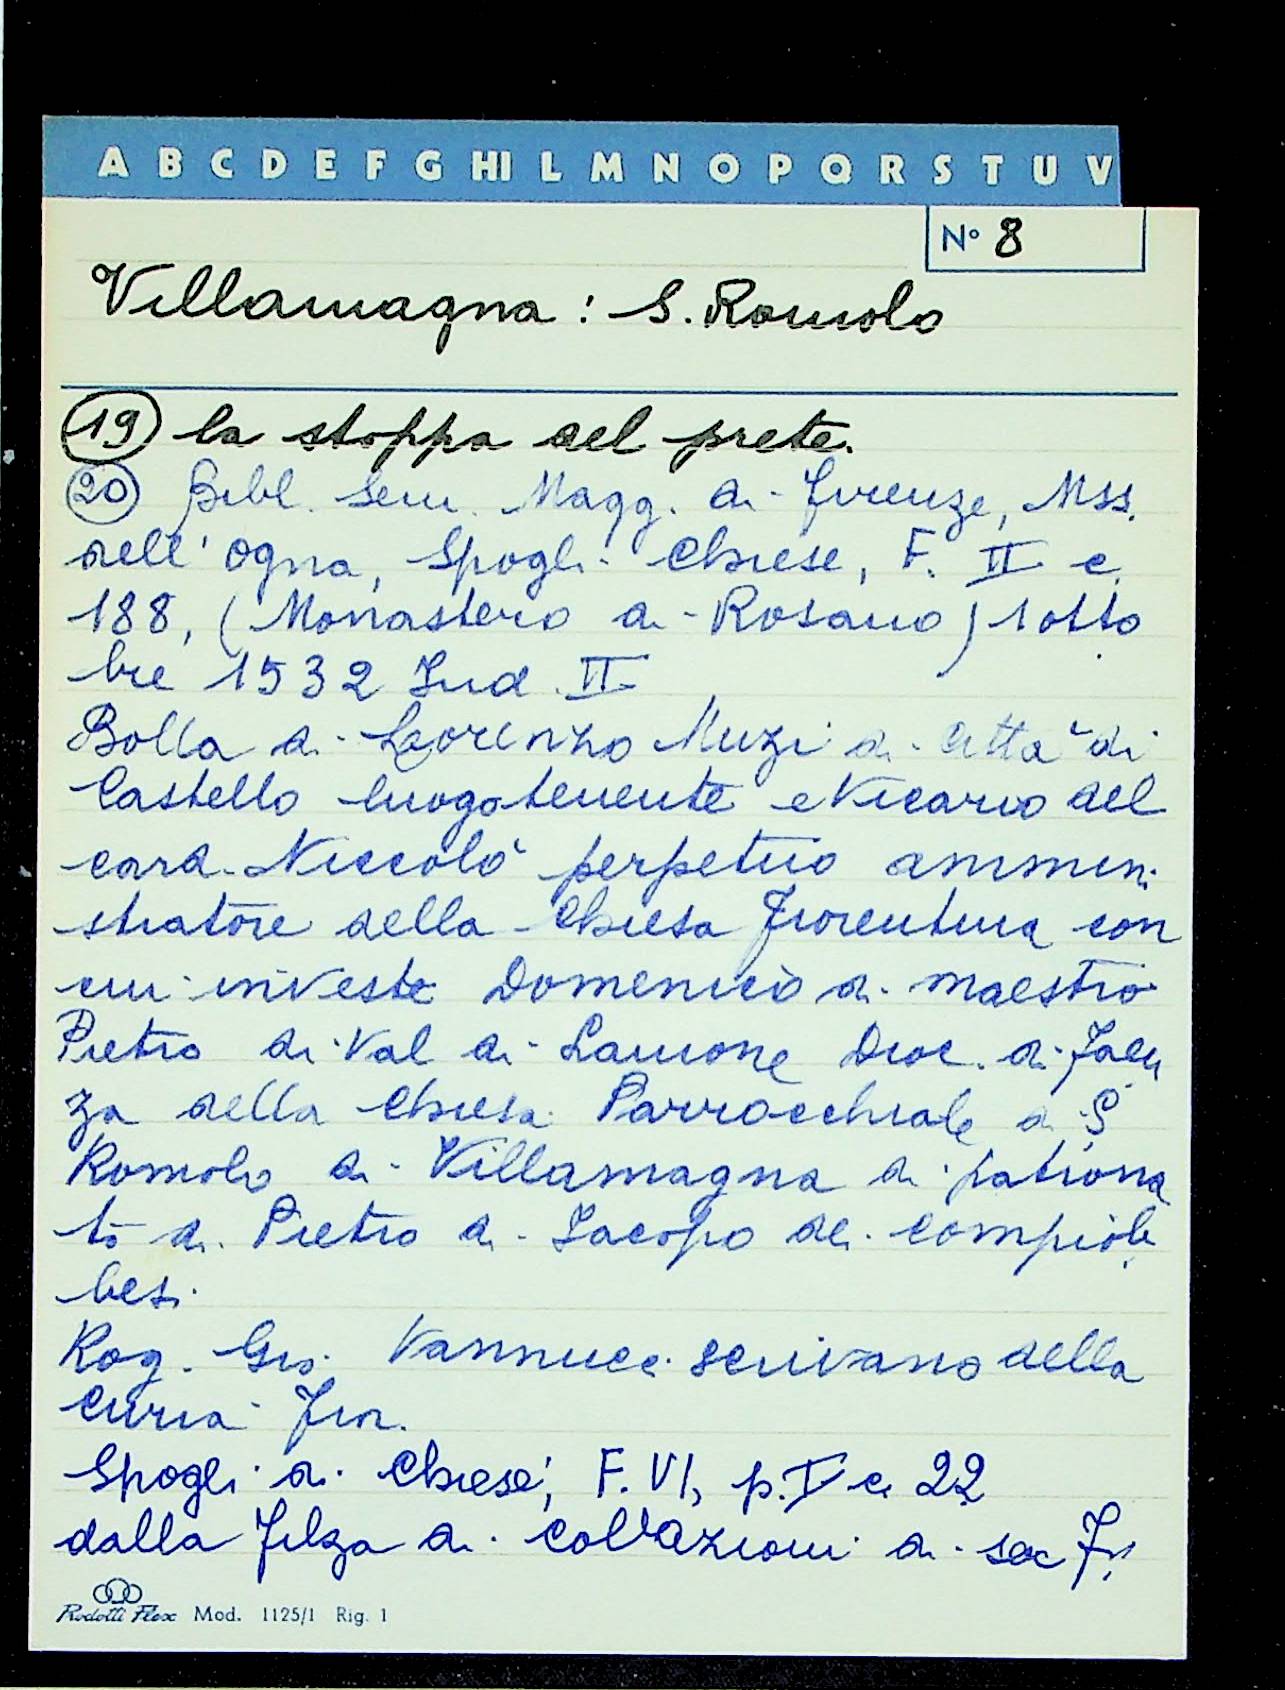 A B C D E F G HI L M N O P Q R S T U V
N° 8
Villamagna: S. Romolo
19 la stoppa del prete.
20 Bibl. Sem. Magg. di Firenze, Mss.
dell'Ogna, Spogli Chiese, F. II c.
188, (Monastero di Rosano) 1 otto
bre 1532 Ind. II
Bolla di Lorenzo Muzi di Città di
Castello luogotenente e Vicario del
card. Niccolò perpetuo ammini
stratore della Chiesa Fiorentina con
cui investe Domenico di maestro
Pietro di Val di Lamone Dioc. di Faen
za della Chiesa Parrocchiale di S.
Romolo di Villamagna di patrona
to di Pietro di Jacopo dei Compiob
besi.
Rog. Gio. Vannucci scrivano della
Curia Fior.
Spogli di Chiese, F. VI, p. I c. 22
dalla Filza di collazioni di ser
Rodotti Flex Mod. 1125/1 Rig. 1